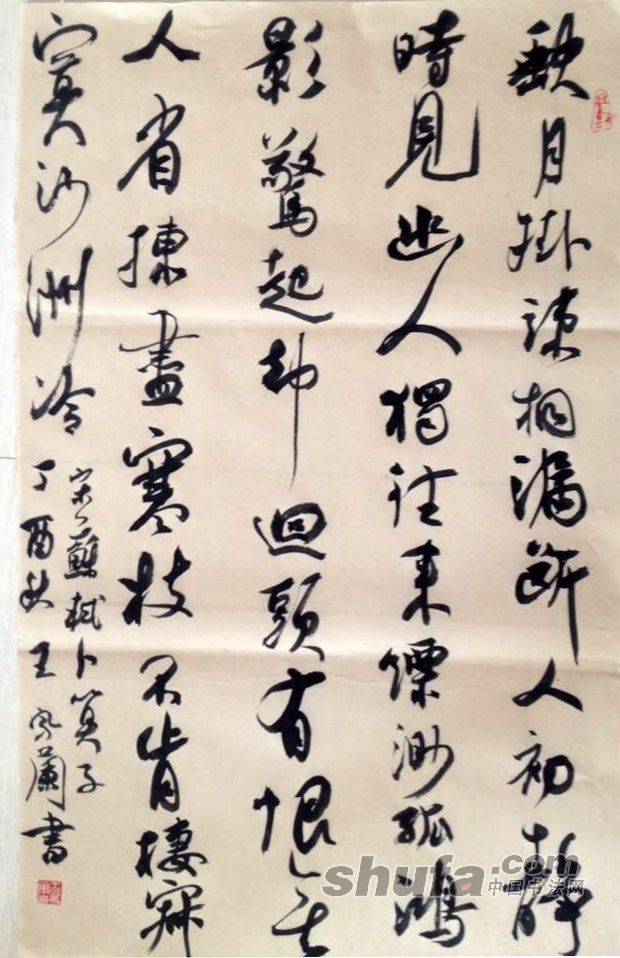 缺月掛疎桐漏斷人初靜
時見幽人獨往來縹渺孤鴻
影驚起却迴頭有恨無
人省揀盡寒枝不肯棲寂
寞沙洲冷
宋蘇軾卜算子
丁酉秋王鳳蘭書
shufa.com
中国书法网